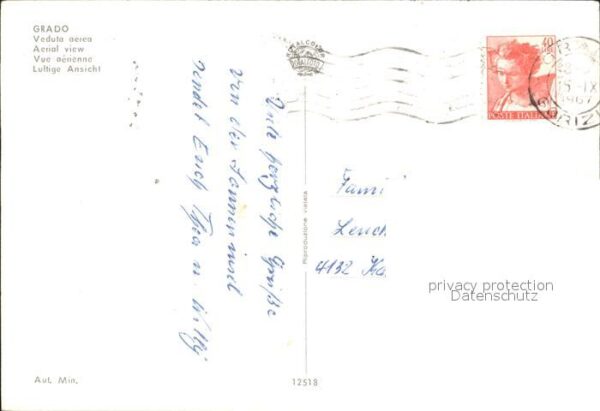 GRADO
Veduta aerea
Aerial view
Vue aérienne
Luftige Ansicht
40
POSTE ITALIANE
1967
Viele herzliche Grüße
von der Sonneninsel
sendet Euch u. Willy
Riproduzione vietata
Fami
Lench
4132 Ka
privacy protection
Datenschutz
Aut. Min.
12518